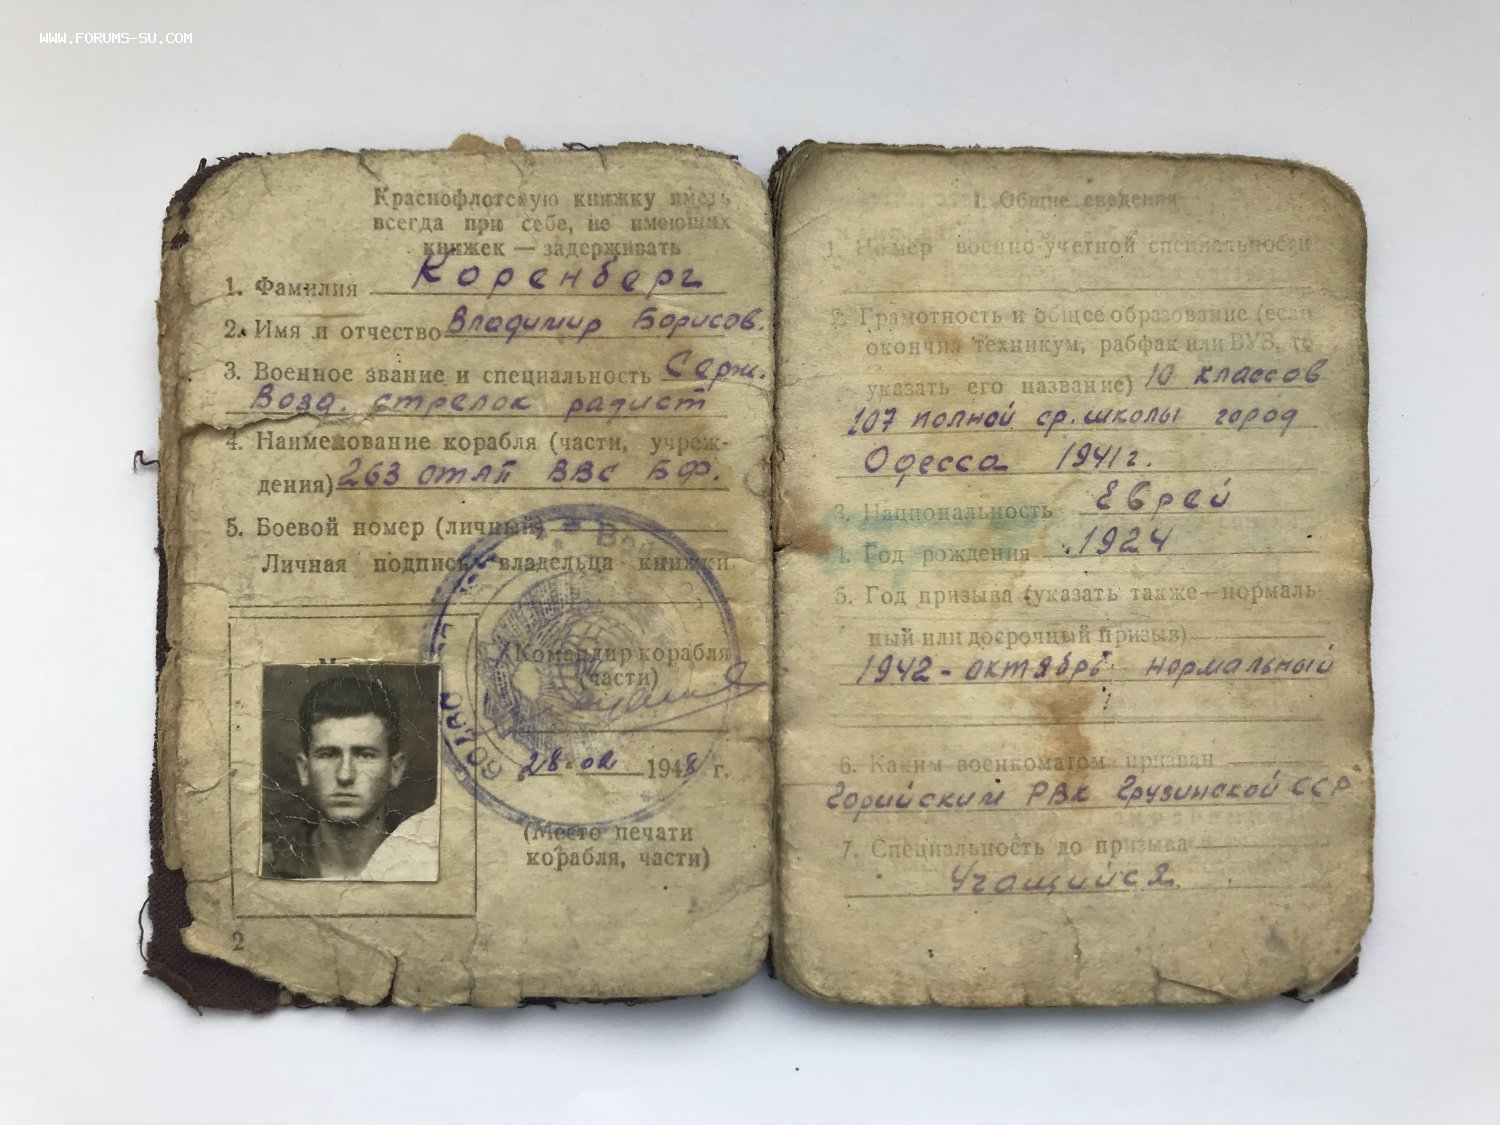 WWW.FORUMS-SU.COM
Краснофлотскую книжку иметь
всегда при себе, не имеющих
книжек — задерживать
1. Фамилия Коренберг
2. Имя и отчество Владимир Борисов.
3. Военное звание и специальность Серж.
Возд. стрелок радист
4. Наименование корабля (части, учреж-
дения) 263 отАП ВВС БФ.
5. Боевой номер (личный)
Личная подпись владельца книжки
Командир корабля
(части)
28 02 1948 г.
(Место печати
корабля, части)
2
I. Общие сведения
1. Номер военно-учетной специальности
2. Грамотность и общее образование (если
окончил техникум, рабфак или ВУЗ, то
указать его название) 10 классов
107 полной ср. школы город
Одесса 1941 г.
3. Национальность Еврей
4. Год рождения 1924
5. Год призыва (указать также — нормаль-
ный или досрочный призыв)
1942 - октябрь нормальный
6. Каким военкоматом призван
Горийским РВК Грузинской ССР
7. Специальность до призыва
Учащийся